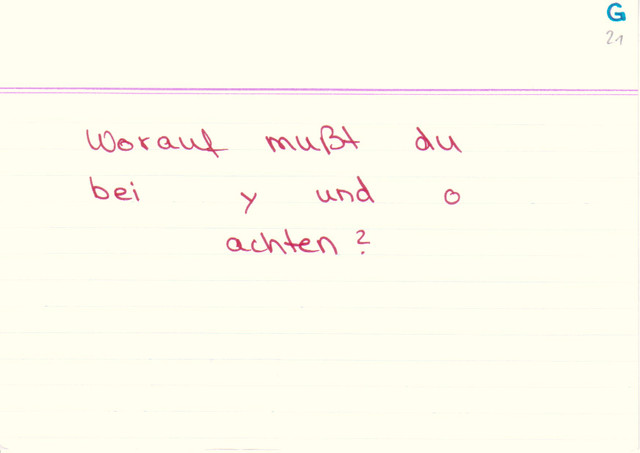 G
21
Worauf mußt du
bei y und o
achten?